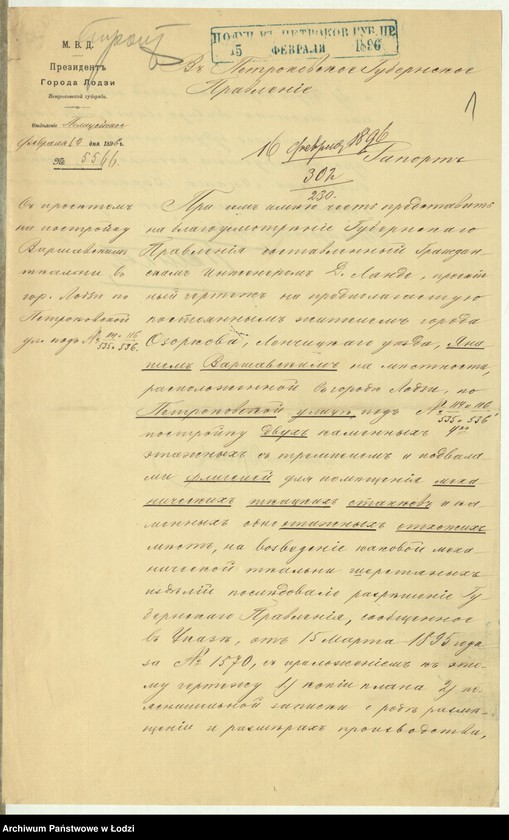 М. В. Д.
Президентъ
Города Лодзи
Петроковской губерніи.
Отдѣленіе Полицейское
Февраля 12 дня 1896 г.
№ 5566
ПОЛУЧ. КЪ ПЕТРОКОВ. ГУБ. ПР.
15 ФЕВРАЛИ 1896
Въ Петроковское Губернское
Правленіе
1
16 февраля 1896
302
230.
Рапортъ
Съ проектомъ
на постройку
Варшавскимъ
ткальни въ
гор. Лодзи по
Петроковской
ул. подъ №
При семъ имѣю честь представить
на благоусмотрѣніе Губернскаго
Правленія составленный Граждан-
скимъ Инженеромъ Д. Ланде, проект-
ный чертежъ на предполагаемую
постояннымъ жителемъ города
Озоркова, Ленчицкаго уѣзда,
Варшавскимъ на мѣстности,
расположенной въ городѣ Лодзи, по
Петроковской улицѣ подъ №
постройку двухъ каменныхъ
этажныхъ съ и подвала-
ми флигелей для помѣщенія меха
ническихъ ткацкихъ станковъ и ка-
менныхъ одноэтажныхъ отхожихъ
мѣстъ, на возведеніе каковой меха-
нической ткальни шерстяныхъ
издѣлій послѣдовало разрѣшеніе Гу-
бернскаго Правленія, сообщенное
въ Указѣ, отъ 15 Марта 1895 года
за № 1570, съ приложеніемъ къ это-
му чертежу 1) копіи плана 2) по-
яснительной записки о родѣ, разме-
щеніи и размѣрахъ производства,
Archiwum Państwowe w Łodzi